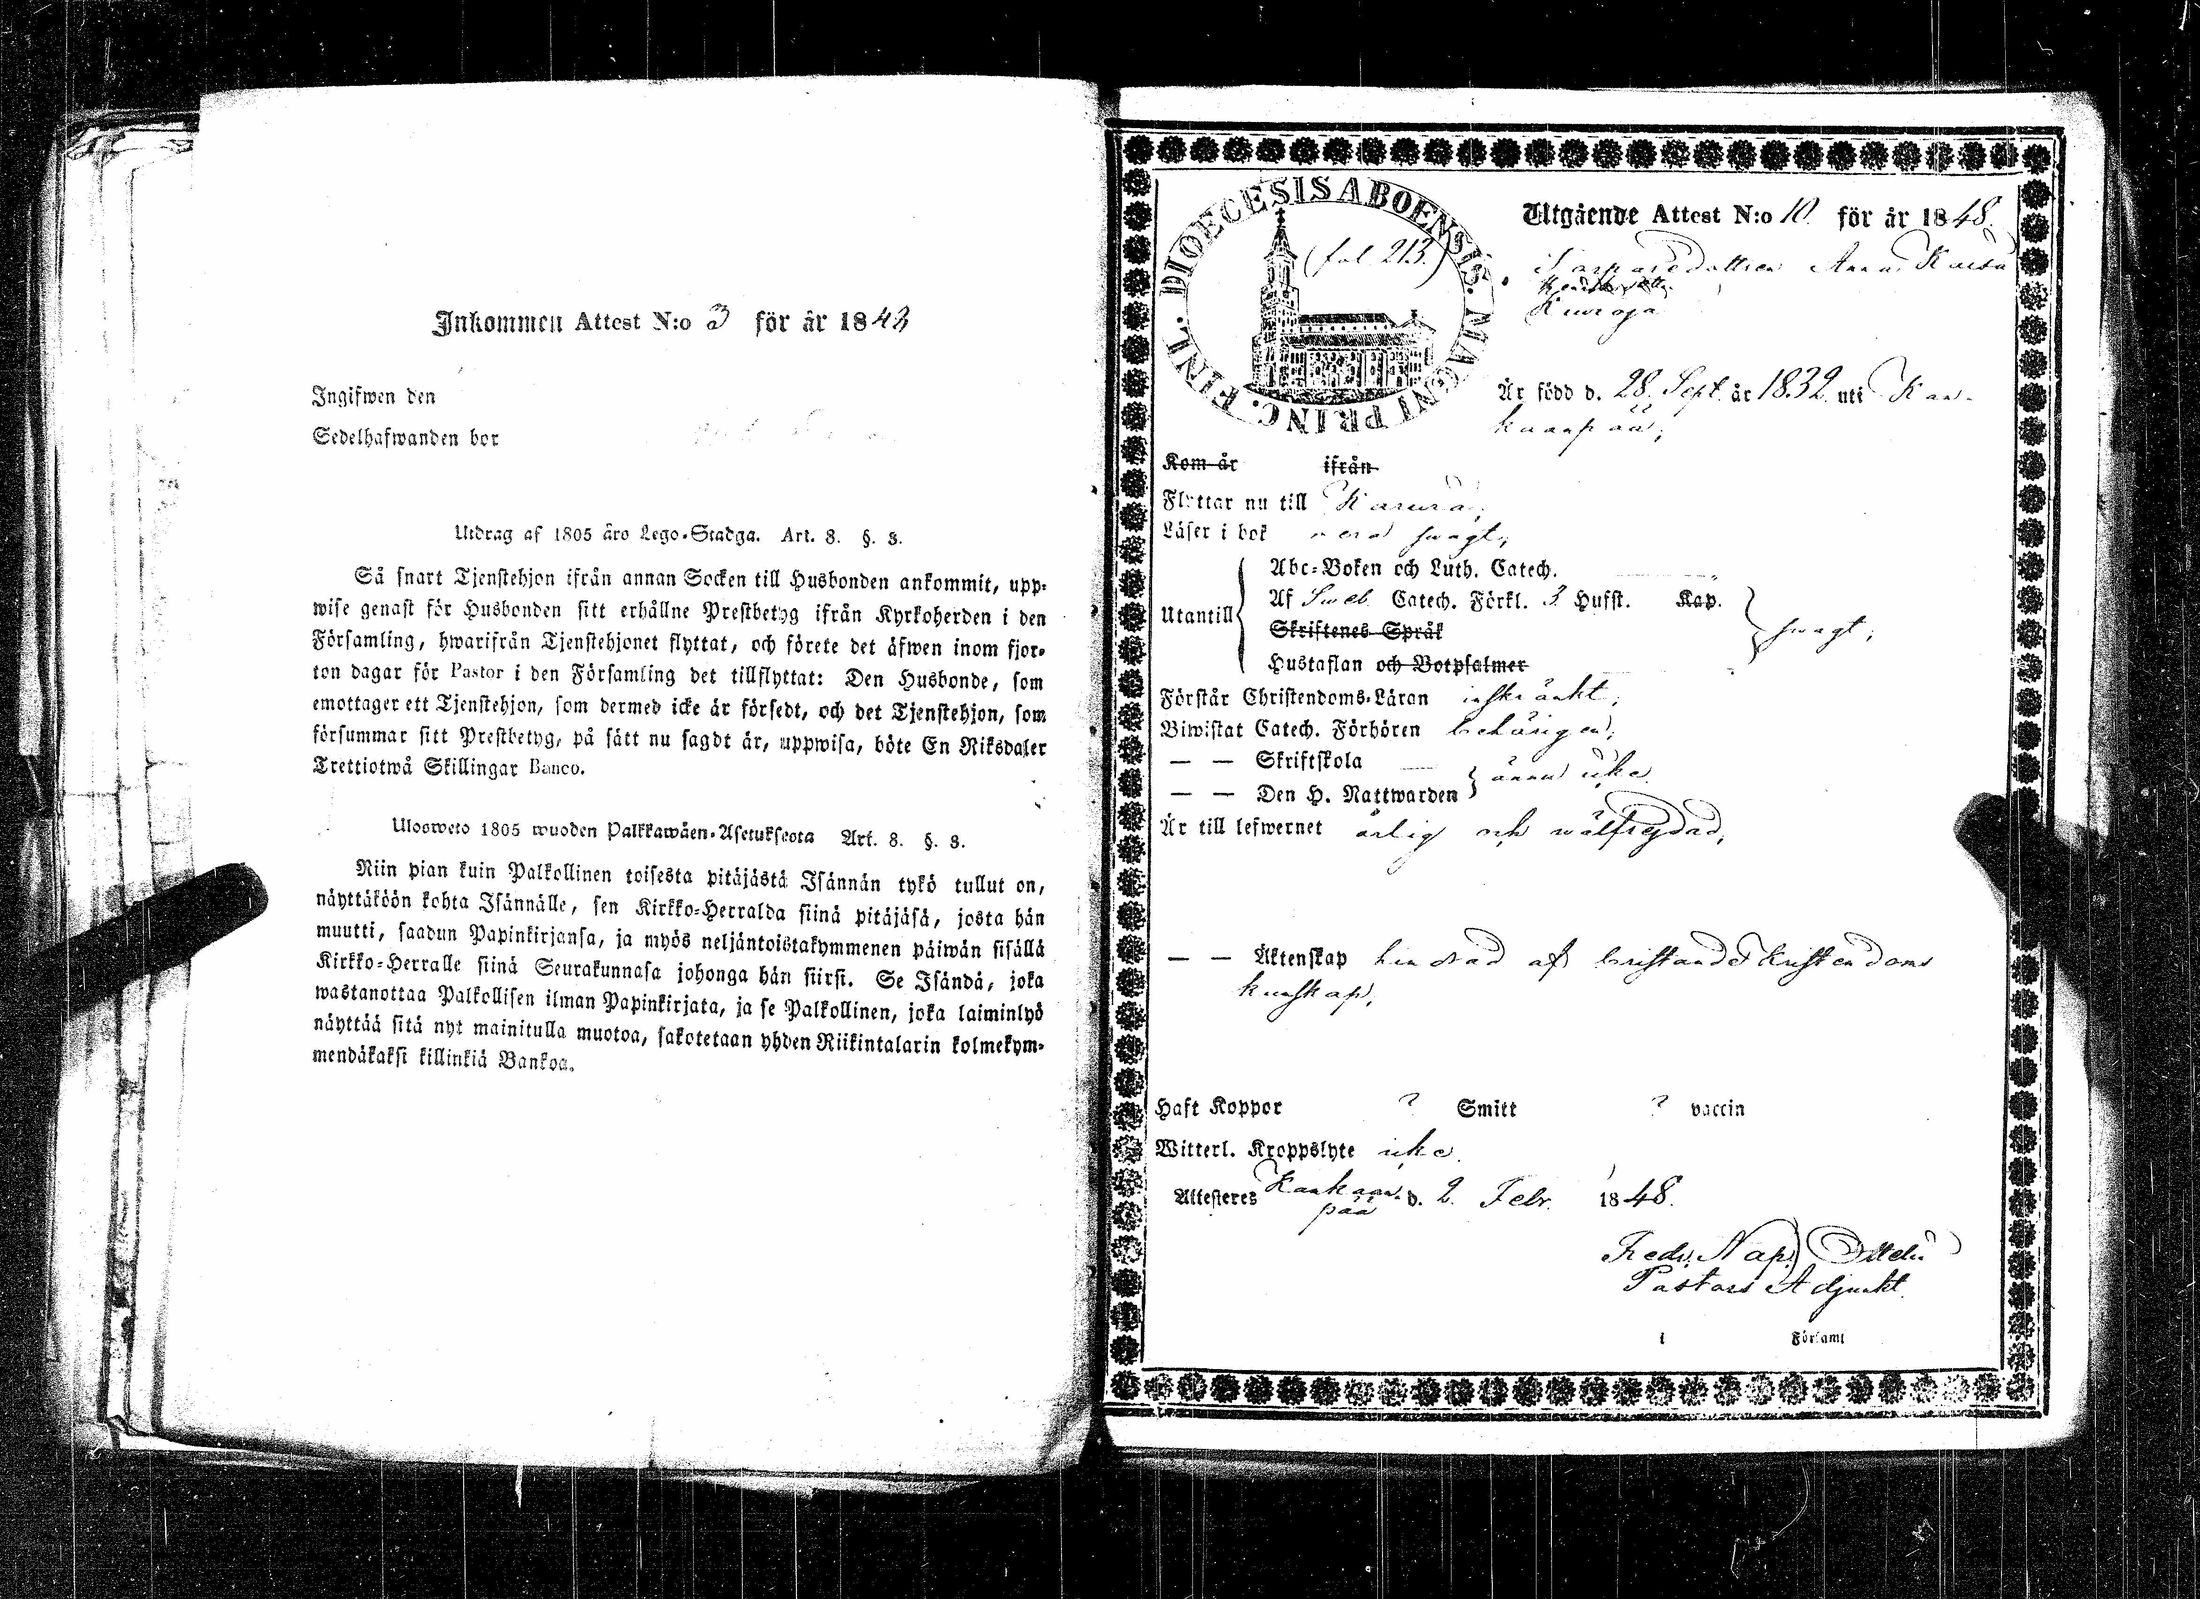 Inkommen Attest N:o 3 för år 1843
Ingifwen den
Sedelhafwanden bor
Utdrag af 1805 års Lego-Stadga. Art. 8. §. 8.
Så snart Tjenstehjon ifrån annan Socken till Husbonden ankommit, upp-
wise genast för Husbonden sitt erhållne Prestbetyg ifrån Kyrkoherden i den
Församling, hwarifrån Tjenstehjonet flyttat, och förete det äfwen inom fjor-
ton dagar för Pastor i den Församling det tillflyttat: Den Husbonde, som
emottager ett Tjenstehjon, som dermed icke är försedt, och det Tjenstehjon, som
försummar sitt Prestbetyg, på sätt nu sagdt är, uppwisa, böte En Riksdaler
Trettiotwå Skillingar Banco.
Ulosweto 1805 wuoden Palkkawäen-Asetuksesta Art. 8. §. 8.
Niin pian kuin Palkollinen toisesta pitäjästä Isännän tykö tullut on,
näyttäköön kohta Isännälle, sen Kirkko-Herralda siinä pitäjäsä, josta hän
muutti, saadun Papinkirjansa, ja myös neljäntoistakymmenen päiwän sisällä
Kirkko-Herralle siinä Seurakunnasa johonga hän siirsi. Se Isändä, joka
wastanottaa Palkollisen ilman Papinkirjata, ja se Palkollinen, joka laiminlyö
näyttää sitä nyt mainitulla muotoa, sakotetaan yhden Riikintalarin kolmekym-
mendäkaksi killinkiä Bankoa.
DIOECESIS ABOENSIS. MAGNI PRINC. FINL.
(fol 213.)
Utgående Attest N:o 10. för år 1848.
Anna Kaisa
Är född d. 28. Sept. år 1832. uti Kan-
kaanpää;
Kom år ifrån
Flyttar nu till Karvia;
Läser i bok swagt;
Abc-Boken och Luth. Catech.
Utantill Af Sweb. Catech. Förkl. 3. Hufst. Kap.
Skriftenes Språk swagt;
Hustaflan och Botpsalmer
Förstår Christendoms-Läran inskränkt;
Biwistat Catech. Förhören behörigen;
— — Skriftskola
— — Den H. Nattwarden ännu icke.
Är till lefwernet ärlig och wälfrejdad;
— — Äktenskap hindrad af bristande Kristendoms
kunskap;
Haft Koppor ? Smitt ? vaccin
Witterl. Kroppslyte icke.
Attesteres Kankaan-
pää d. 2. Febr. 1848.
Fredr. Nap.
Pastors Adjunkt.
i Församl